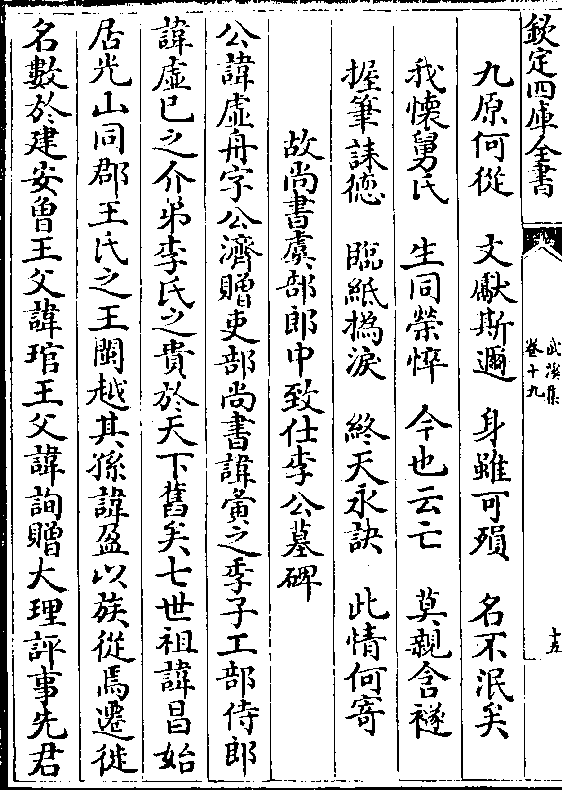 欽定四庫全書
武溪集
卷十九
十五
九原何從　文獻斯邇　身雖可殞　名不泯矣
我懷舅氏　生同榮悴　今也云亡　莫親含襚
握筆誄德　臨紙撝淚　終天永訣　此情何寄
故尚書虞部郎中致仕李公墓碑
公諱虛舟字公濟贈吏部尚書諱寅之季子工部侍郎
諱虛已之介弟李氏之貴於天下舊矣七世祖諱昌始
居光山同郡王氏之王閩越其孫諱盈以族從焉遷徙
名數於建安曾王父諱琯王父諱詢贈大理評事先君